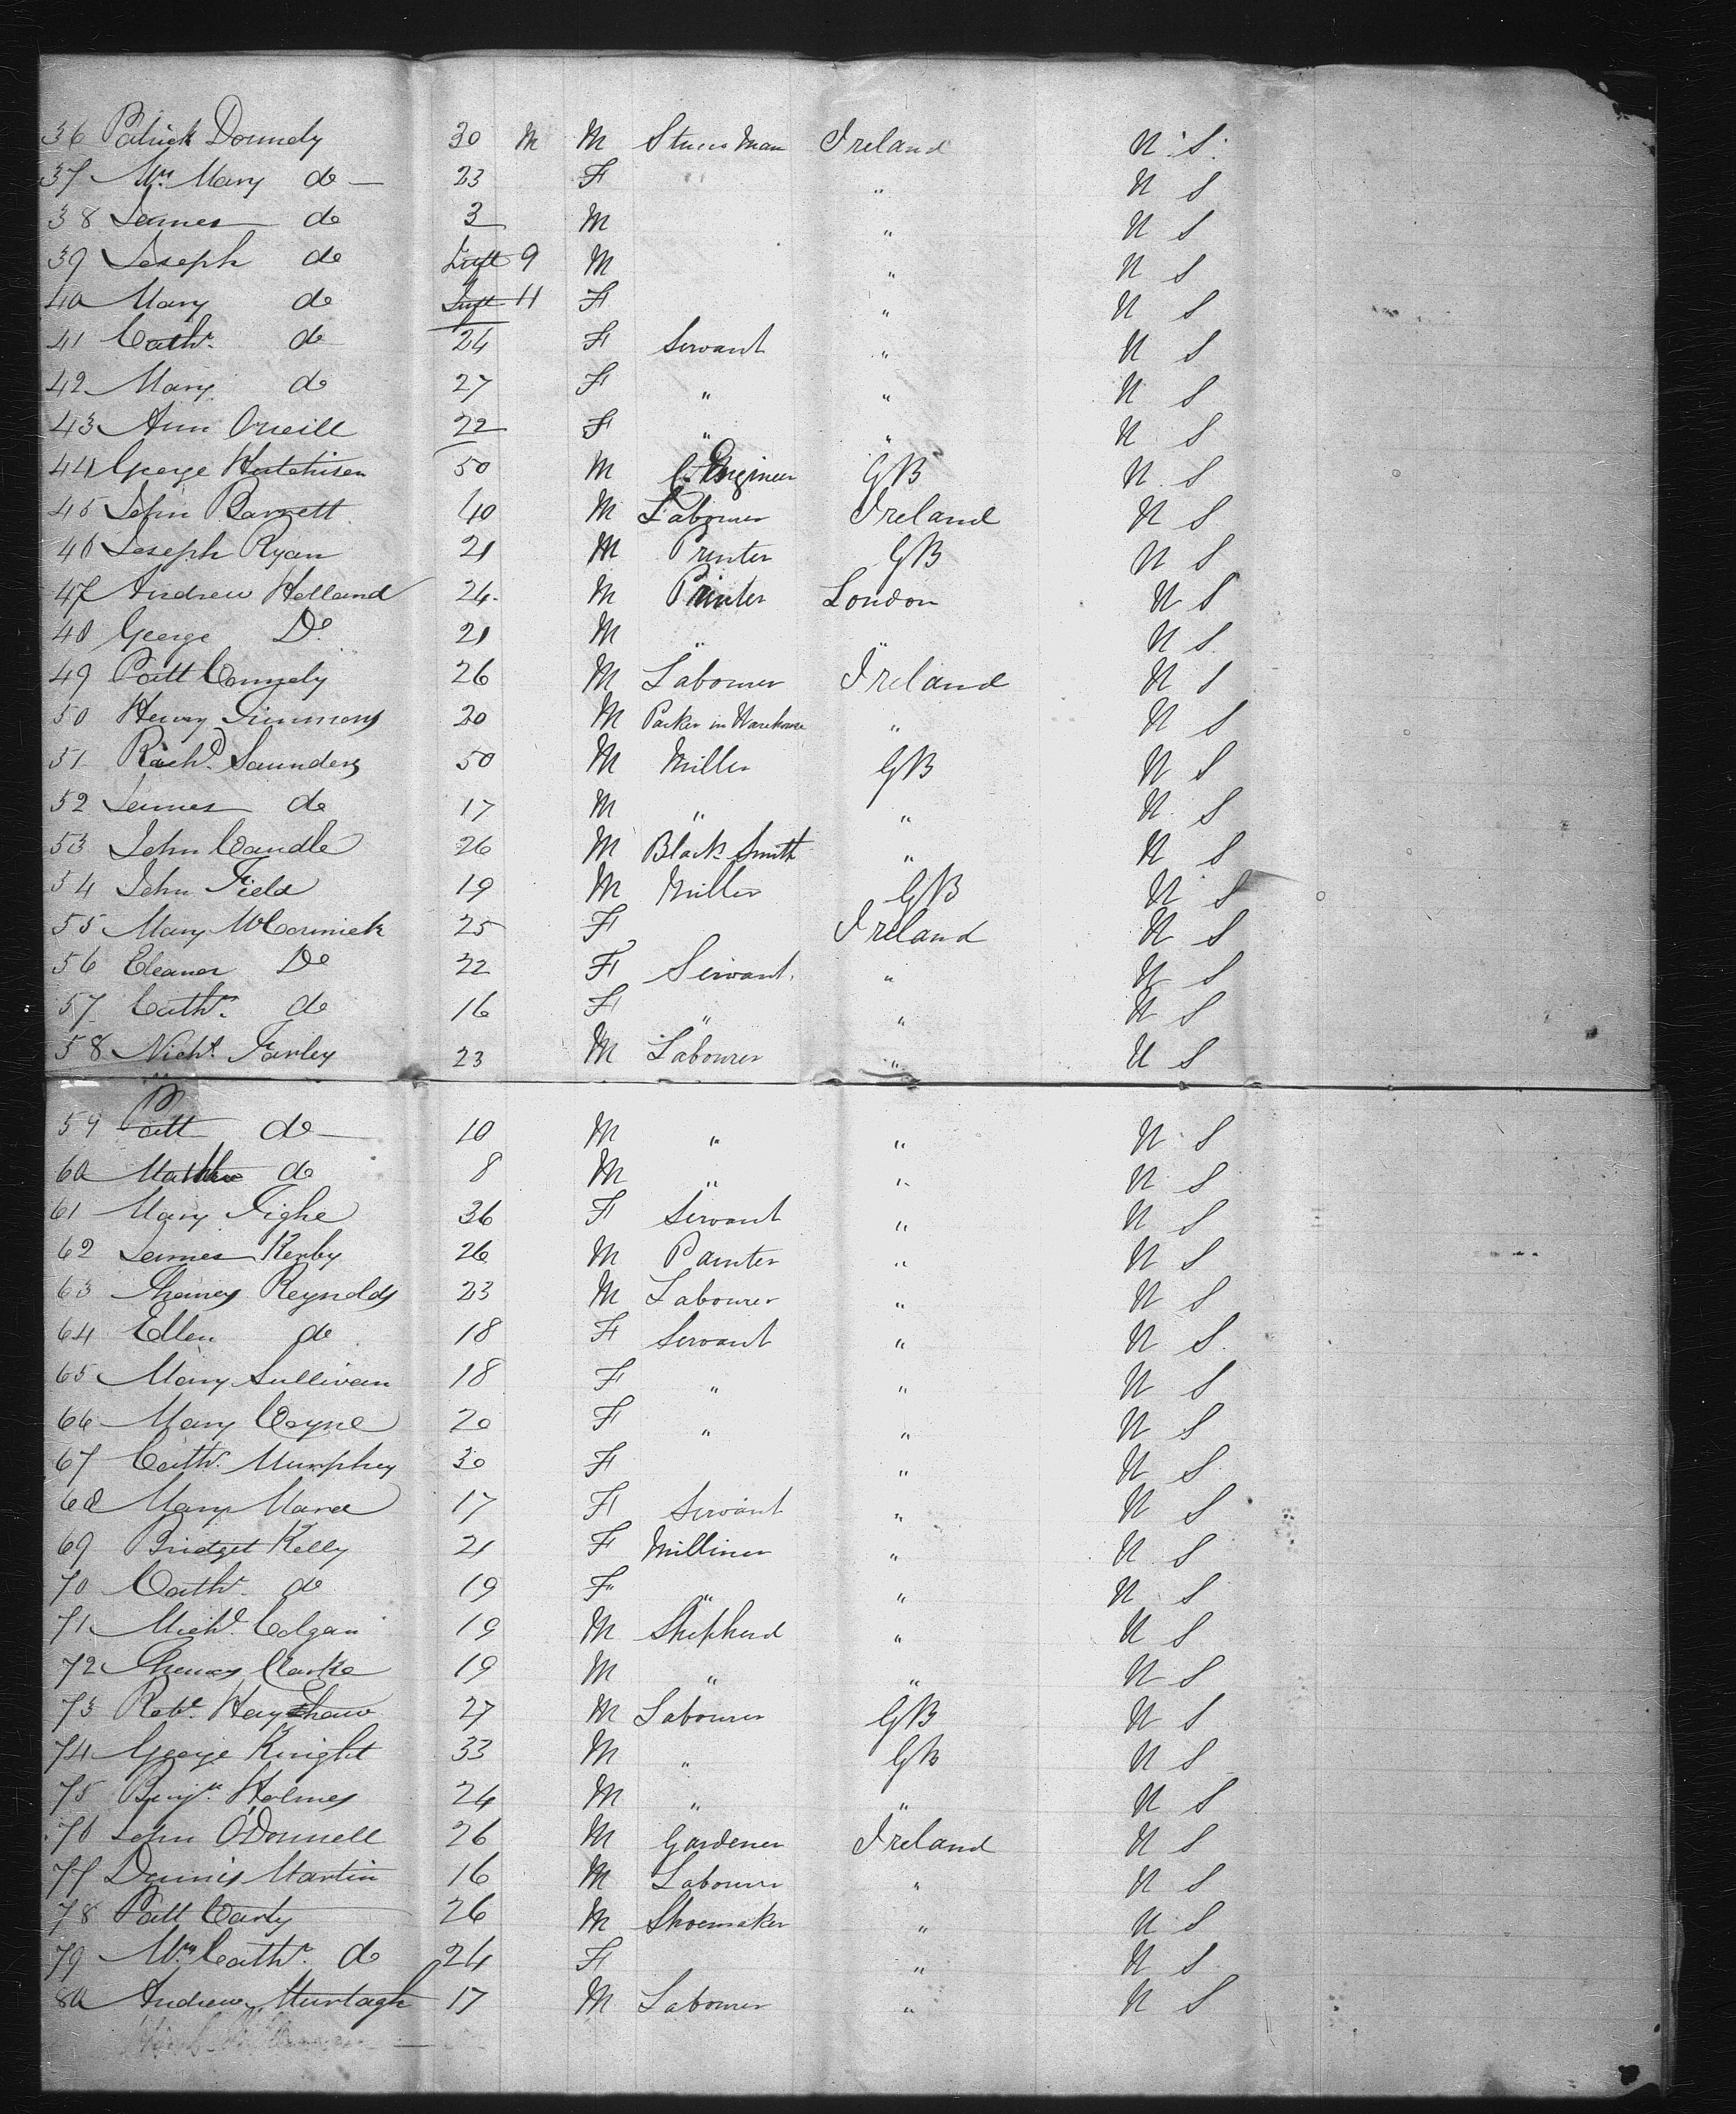 36 Patrick Donnely 30 M M Ireland N. S.
37 Mrs Mary do 23 F " N S
38 James do 3 M " N S
39 Joseph do Inft 9 M " N S
40 Mary do Inft 11 F " N S
41 Cathe do 24 F Servant " N S
42 Mary do 27 F " " N S
43 Ann Oneill 22 F " " N S
44 George Hutchison 50 M C. Engineer GB N S
45 John Barrett 40 M Labourer Ireland N S
46 Joseph Ryan 21 M Printer GB N S
47 Andrew Holland 24 M Printer London N S
48 George Do 21 M " " N S
49 Patt Connely 26 M Labourer Ireland N S
50 Henry Timmons 20 M Packer in Warehouse " N S
51 Richd Saunders 50 M Miller GB N S
52 James do 17 M " " N S
53 John Candle 26 M Black Smith " N S
54 John Field 19 M Miller GB N S
55 Mary McCormick 25 F Ireland N S
56 Eleanor Do 22 F Servant " N S
57 Cathe do 16 F " " N S
58 Nichs Farley 23 M Labourer " N S
59 Patt do 10 M " " N S
60 Matthew do 8 M " " N S
61 Mary Tighe 36 F Servant " N S
62 James Kerby 26 M Painter " N S
63 Thomas Reynolds 23 M Labourer " N S
64 Ellen do 18 F Servant " N S
65 Mary Sullivan 18 F " " N S
66 Mary Coyne 20 F " " N S
67 Cathe Murphey 30 F " N S
68 Mary 17 F Servant " N S
69 Bridget Kelly 21 F Milliner " N S
70 Cathe do 19 F " " N S
71 Michl Colgan 19 M Shepherd " N S
72 Thomas Clarke 19 M " " N S
73 Robt Hayshaw 27 M Labourer GB N S
74 George Knight 33 M " GB N S
75 Benjn Holmes 24 M " " N S
76 John O'Donnell 26 M Gardener Ireland N S
77 Dennis Martin 16 M Labourer " N S
78 Patt Carty 26 M Shoemaker " N S
79 Mrs Cathe do 24 F " N S
80 Andrew Murtagh 17 M Labourer " N S